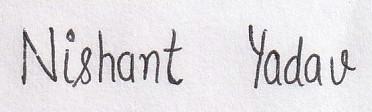 Nishant Yadav